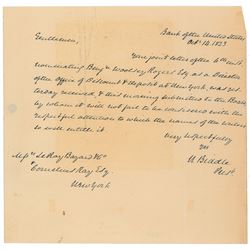 Bank of the United States
Oct. 14. 1823
Gentlemen,
Your joint letter of the 6th inst.
nominating Benj & Woolsey Rogers Esq as a Director
of the Office of Discount & Deposit at New York, was yes-
terday received, & this morning submitted to the Board
by whom it will not fail to be considered with the
respectful attention to which the names of the writers
so well entitle it.
Very respectfully
yrs
N Biddle
Prest.
Messrs LeRoy Bayard & Co
&
Cornelius Ray Esq.
New York